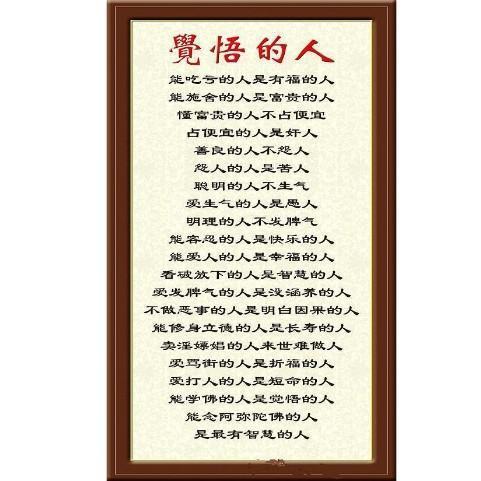 覺悟的人
能吃亏的人是有福的人
能施舍的人是富贵的人
懂富贵的人不占便宜
占便宜的人是奸人
善良的人不怨人
怨人的人是苦人
聪明的人不生气
爱生气的人是愚人
明理的人不发脾气
能容忍的人是快乐的人
能爱人的人是幸福的人
看破放下的人是智慧的人
爱发脾气的人是没涵养的人
不做恶事的人是明白因果的人
能修身立德的人是长寿的人
卖淫嫖娼的人来世难做人
爱骂街的人是折福的人
爱打人的人是短命的人
能学佛的人是觉悟的人
能念阿弥陀佛的人
是最有智慧的人